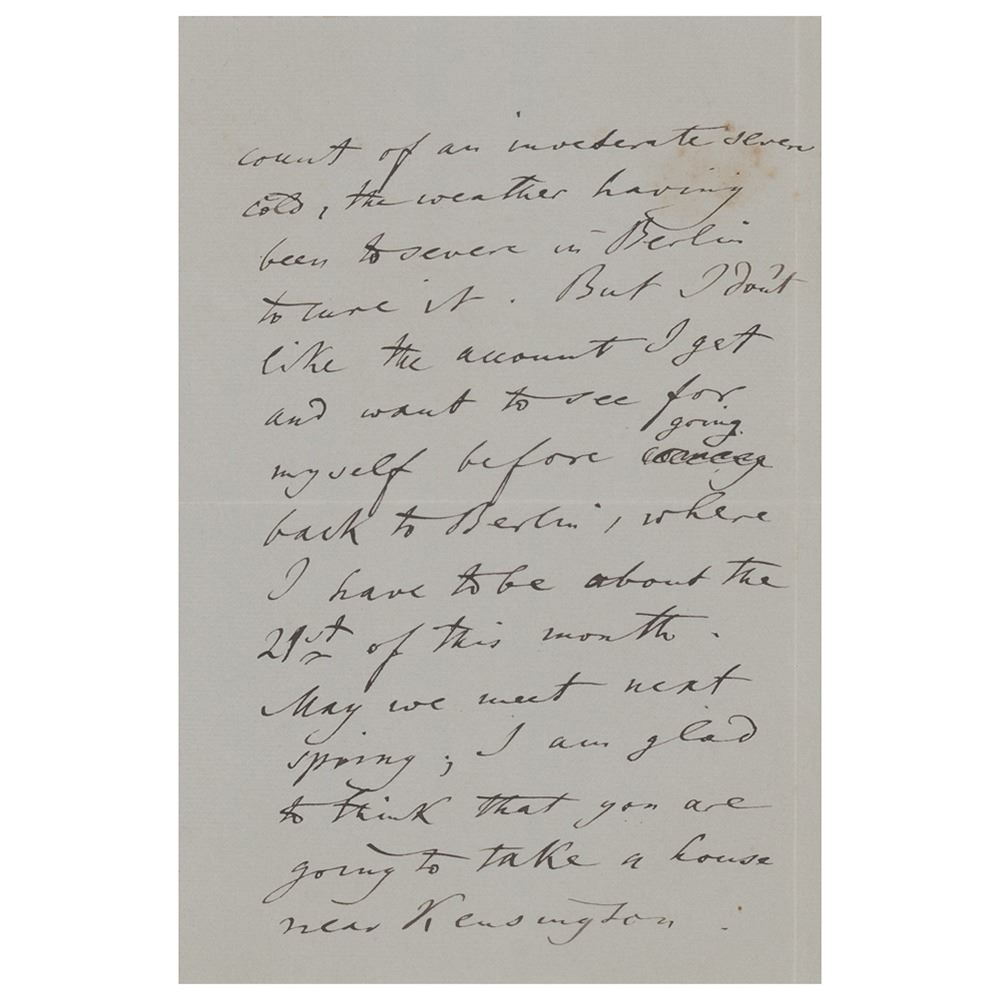 count of an inveterate severe
cold, the weather having
been to severe in Berlin
to cure it. But I don't
like the account I get
and want to see for
myself before coming going
back to Berlin, where
I have to be about the
21st of this month.
May we meet next
spring; I am glad
to think that you are
going to take a house
near Kensington.